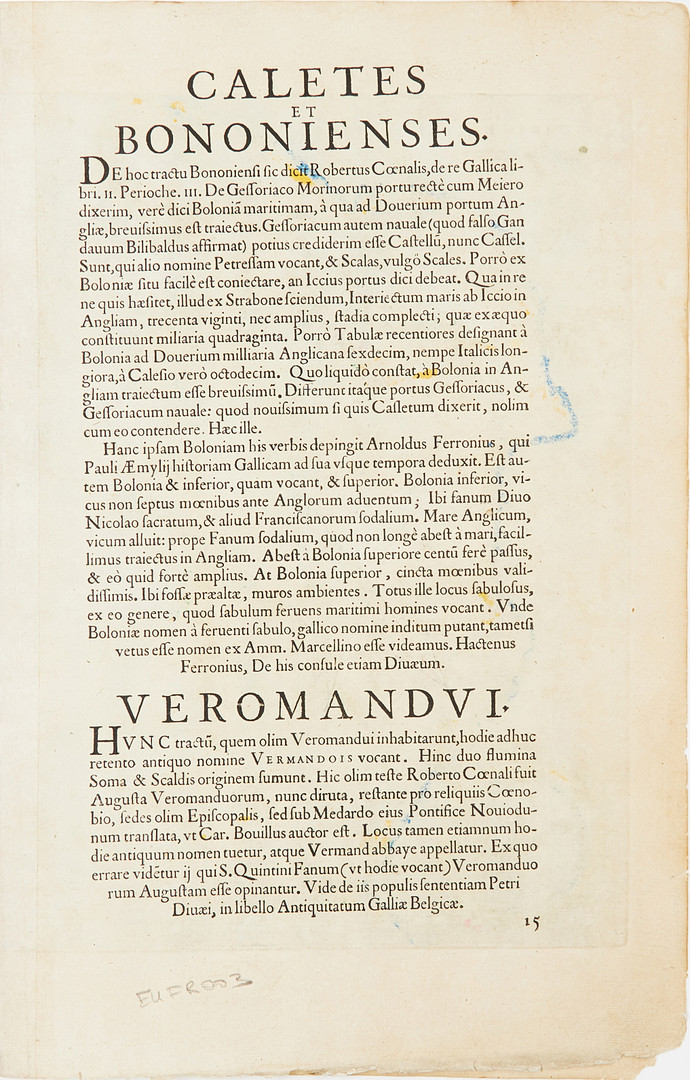 CALETES
ET
BONONIENSES.
DE hoc tractu Bononiensi sic dicit Robertus Cœnalis, de re Gallica li-
bri. 11. Perioche. 111. De Gessoriaco Morinorum portu rectè cum Meiero
dixerim, verè dici Boloniã maritimam, à qua ad Douerium portum An-
gliæ, breuissimus est traiectus. Gessoriacum autem nauale (quod falso Gan
dauum Bilibaldus affirmat) potius crediderim esse Castellũ, nunc Cassel.
Sunt, qui alio nomine Petressam vocant, & Scalas, vulgò Scales. Porrò ex
Boloniæ situ facilè est coniectare, an Iccius portus dici debeat. Qua in re
ne quis hæsitet, illud ex Strabone sciendum, Interiectum maris ab Iccio in
Angliam, trecenta viginti, nec amplius, stadia complecti; quæ ex æquo
constituunt miliaria quadraginta. Porrò Tabulæ recentiores designant à
Bolonia ad Douerium milliaria Anglicana sexdecim, nempe Italicis lon-
giora, à Calesio verò octodecim. Quo liquidò constat, à Bolonia in An-
gliam traiectum esse breuissimũ. Differunt itaque portus Gessoriacus, &
Gessoriacum nauale: quod nouissimum si quis Casletum dixerit, nolim
cum eo contendere. Hæc ille.
Hanc ipsam Boloniam his verbis depingit Arnoldus Ferronius, qui
Pauli Æmylij historiam Gallicam ad sua vsque tempora deduxit. Est au-
tem Bolonia & inferior, quam vocant, & superior. Bolonia inferior, vi-
cus non septus mœnibus ante Anglorum aduentum; Ibi fanum Diuo
Nicolao sacratum, & aliud Franciscanorum sodalium. Mare Anglicum,
vicum alluit: prope Fanum sodalium, quod non longè abest à mari, facil-
limus traiectus in Angliam. Abest à Bolonia superiore centũ ferè passus,
& eò quid fortè amplius. At Bolonia superior, cincta mœnibus vali-
dissimis. Ibi fossæ præaltæ, muros ambientes. Totus ille locus sabulosus,
ex eo genere, quod sabulum feruens maritimi homines vocant. Vnde
Boloniæ nomen à feruenti sabulo, gallico nomine inditum putant, tametsi
vetus esse nomen ex Amm. Marcellino esse videamus. Hactenus
Ferronius, De his consule etiam Diuæum.
VEROMANDVI.
HVNC tractũ, quem olim Veromandui inhabitarunt, hodie adhuc
retento antiquo nomine VERMANDOIS vocant. Hinc duo flumina
Soma & Scaldis originem sumunt. Hic olim teste Roberto Cœnali fuit
Augusta Veromanduorum, nunc diruta, restante pro reliquiis Cœno-
bio, sedes olim Episcopalis, sed sub Medardo eius Pontifice Nouiodu-
num translata, vt Car. Bouillus auctor est. Locus tamen etiamnum ho-
die antiquum nomen tuetur, atque Vermand abbaye appellatur. Ex quo
errare vidẽtur ij qui S. Quintini Fanum (vt hodie vocant) Veromanduo
rum Augustam esse opinantur. Vide de iis populis sententiam Petri
Diuæi, in libello Antiquitatum Galliæ Belgicæ.
15
EUFR003